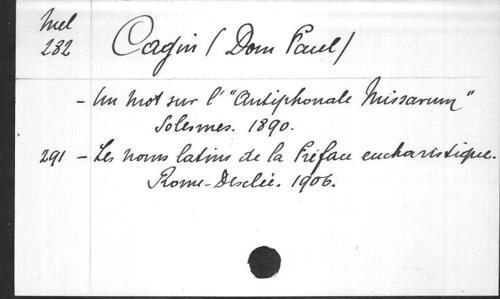 Mel
282 Cagin (Dom Paul)
- Un mot sur l' "Antiphonale Missarum"
Solesmes. 1890.
291 - Les noms latins de la Préface eucharistique.
Rome-Desclée. 1906.